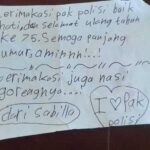 terimakasi pak polisi baik
hati, dan selamat ulang tahun
ke 75. Semoga panjang
umur. aminnn..!
terimakasi juga nasi
gorengnya...!
dari sabilla
I ♡ Pak
polisi